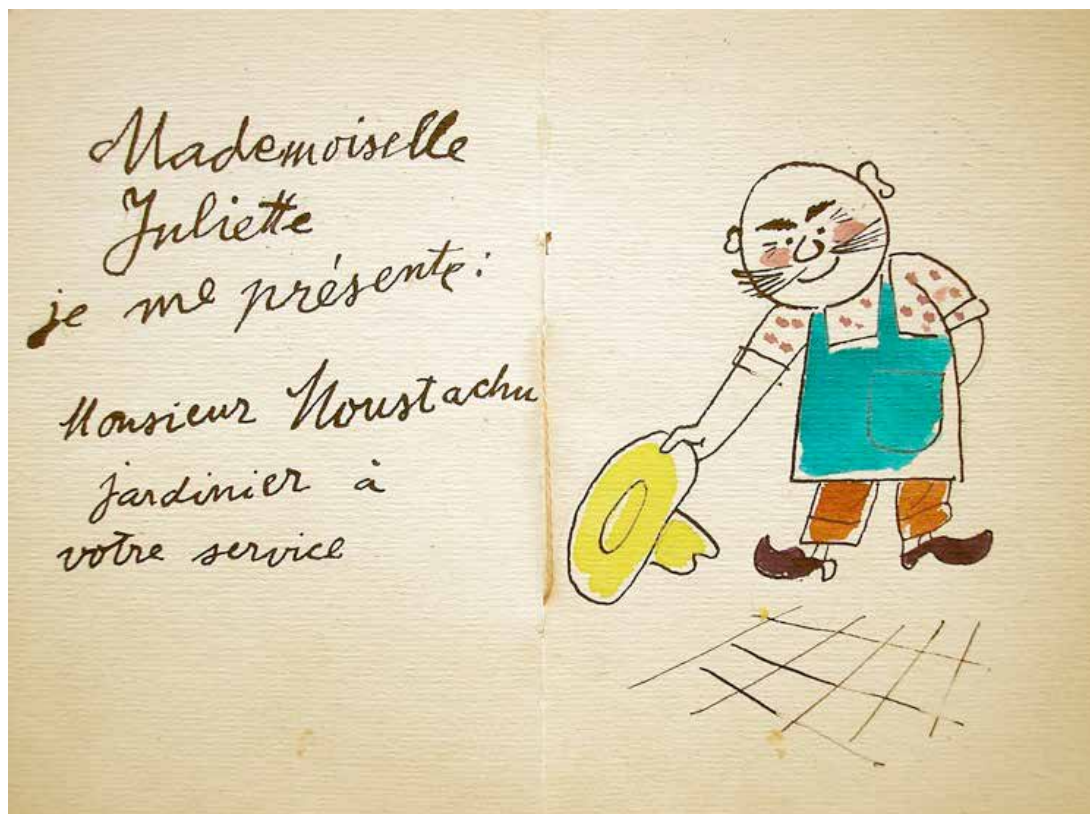 Mademoiselle
Juliette
je me présente:
Monsieur Moustachu
jardinier à
votre service